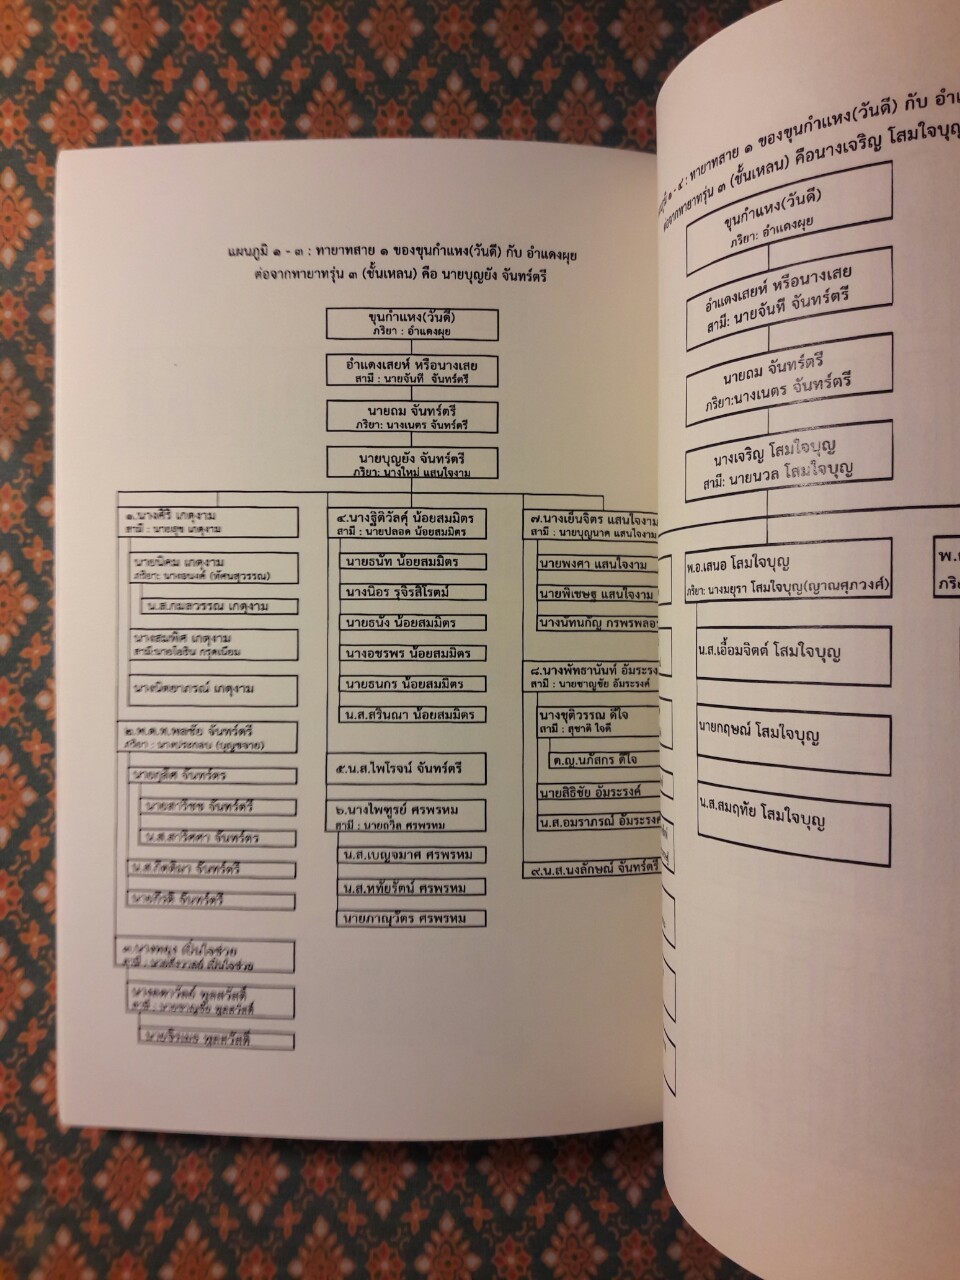 แผนภูมิ ๑ - ๓ : ทายาทสาย ๑ ของขุนกำแหง(วันดี) กับ อำแดงผุย
ต่อจากทายาทรุ่น ๓ (ชั้นเหลน) คือ นายบุญยัง จันทร์ตรี
ขุนกำแหง(วันดี)
ภริยา : อำแดงผุย
อำแดงเสยห์ หรือนางเสย
สามี : นายจันที จันทร์ตรี
นายถม จันทร์ตรี
ภริยา: นางเนตร จันทร์ตรี
นายบุญยัง จันทร์ตรี
ภริยา: นางใหม่ แสนใจงาม
๑.นางศิริ เกตุงาม
สามี : นายสุข เกตุงาม
นายนิคม เกตุงาม
ภริยา: นางอนงค์ (ทัศนสุวรรณ)
น.ส.กมลวรรณ เกตุงาม
นางสมพิศ เกตุงาม
นางนิตยาภรณ์ เกตุงาม
๒.พ.ต.ท.พลชัย จันทร์ตรี
ภริยา : นางประกอบ (บุญขจาย)
จันทร์ตร
นายสาริชช จันทร์ตรี
น.ส.สาริศศา จันทร์ตร
น.ส.กิตติมา จันทร์ตรี
นายกีรติ จันทร์ตรี
พูลสวัสดิ์
สามี : นายชาญชัย พูลสวัสดิ์
พูลสวัสดิ์
๔.นางฐิติวัลคุ์ น้อยสมมิตร
สามี : นายปลอด น้อยสมมิตร
นายธนัท น้อยสมมิตร
นางนิอร รุจิรสิโรตม์
นายธนัง น้อยสมมิตร
นางอชรพร น้อยสมมิตร
นายธนกร น้อยสมมิตร
น.ส.สวินณา น้อยสมมิตร
๕.น.ส.ไพโรจน์ จันทร์ตรี
๖.นางไพฑูรย์ ศรพรหม
สามี : นายถวิล ศรพรหม
น.ส.เบญจมาศ ศรพรหม
น.ส.หทัยรัตน์ ศรพรหม
นายภาณุวัตร ศรพรหม
๗.นางเย็นจิตร แสนใจงาม
สามี : นายบุญนาค แสนใจงาม
นายพงศา แสนใจงาม
นายพิเชษฐ แสนใจงาม
นางนัทนกัญ กรพรพลอ
๘.นางพัทธานันท์ อัมระรงค์
สามี : นายชาญชัย อัมระรงค์
นางชุติวรรณ ดีใจ
สามี : สุชาติ ใจดี
ด.ญ.นภัสกร ดีใจ
นายสิธิชัย อัมระรงค์
น.ส.อมราภรณ์ อัมระรงค
๙.น.ส.นงลักษณ์ จันทร์ตรี
๑ - ๔ : ทายาทสาย ๑ ของขุนกำแหง(วันดี) กับ อำแ
ต่อจากทายาทรุ่น ๓ (ชั้นเหลน) คือนางเจริญ โสมใจบุญ
ขุนกำแหง(วันดี)
ภริยา: อำแดงผุย
อำแดงเสยห์ หรือนางเสย
สามี: นายจันที จันทร์ตรี
นายถม จันทร์ตรี
ภริยา:นางเนตร จันทร์ตรี
นางเจริญ โสมใจบุญ
สามี: นายนวล โสมใจบุญ
พ.อ.เสนอ โสมใจบุญ
ภริยา: นางมยุรา โสมใจบุญ(ญาณศุภวงศ์)
น.ส.เอื้อมจิตต์ โสมใจบุญ
นายกฤษณ์ โสมใจบุญ
น.ส.สมฤทัย โสมใจบุญ